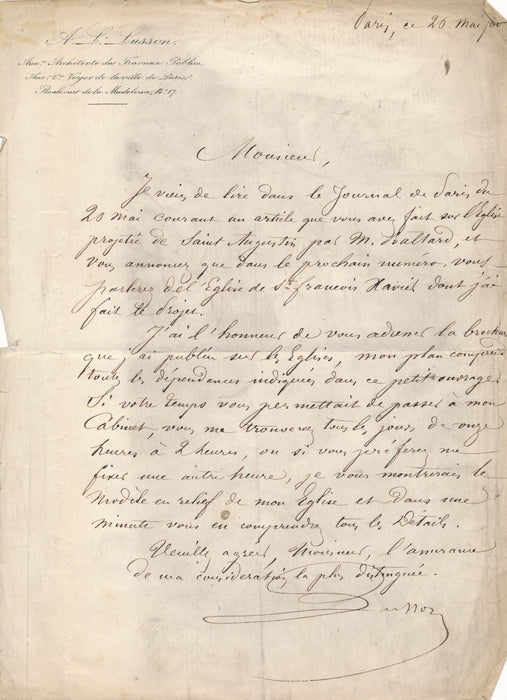 A. L. Lusson.
Ancn. Architecte des Travaux Publics,
Anc. Cre. Voyer de la ville de Paris.
Boulevart de la Madeleine, No. 17.
Paris, ce 26 Mai
Monsieur,
Je viens de lire dans le Journal de Paris du
20 Mai courant un article que vous avez fait sur l'Eglise
projetée de Saint Augustin par M. Baltard, et
vous annoncez que dans le prochain numéro vous
parlerez de l'Eglise de St. François Xavier dont j'ai
fait le Projet.
J'ai l'honneur de vous adresser la brochure
que j'ai publiée sur les Eglises, mon plan comprend
toutes les dépendances indiquées dans ce petit ouvrage
Si votre temps vous permettait de passer à mon
Cabinet, vous me trouverez tous les jours de onze
heures à 2 heures, ou si vous préférez me
fixer une autre heure, je vous montrerais le
Modèle en relief de mon Eglise et dans une
minute vous en comprendrez tous les Détails.
Veuillez agréer, Monsieur, l'assurance
de ma considération la plus distinguée.
Lusson